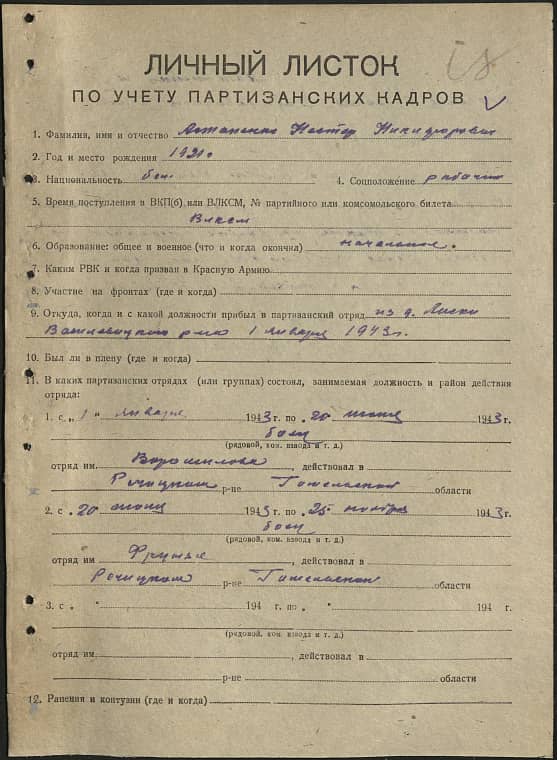 18
ЛИЧНЫЙ ЛИСТОК
ПО УЧЕТУ ПАРТИЗАНСКИХ КАДРОВ
1. Фамилия, имя и отчество Астапенко Нестер Никифорович
2. Год и место рождения 1921г
3. Национальность бел. 4. Соцположение рабочий
5. Время поступления в ВКП(б) или ВЛКСМ, № партийного или комсомольского билета
Влксм
6. Образование: общее и военное (что и когда окончил) начальное.
7. Каким РВК и когда призван в Красную Армию
8. Участие на фронтах (где и когда)
9. Откуда, когда и с какой должности прибыл в партизанский отряд из д.
Василевицкого р-на 1 января 1943г.
10. Был ли в плену (где и когда)
11. В каких партизанских отрядах (или группах) состоял, занимаемая должность и район действия
отряда:
1. с „1" января 1943 г. по „20" июня 1943 г.
боец
(рядовой, ком. взвода и т. д.)
отряд им. Ворошилова, действовал в
Речицком р-не Гомельской области
2. с „20" июня 1943 г. по „25" ноября 1943 г.
боец
(рядовой, ком. взвода и т. д.)
отряд им. Фрунзе, действовал в
Речицком р-не Гомельской области
3. с „ " 194 г. по „ " 194 г.
(рядовой, ком. взвода и т. д.)
отряд им. , действовал в
р-не области
12. Ранения и контузии (где и когда)